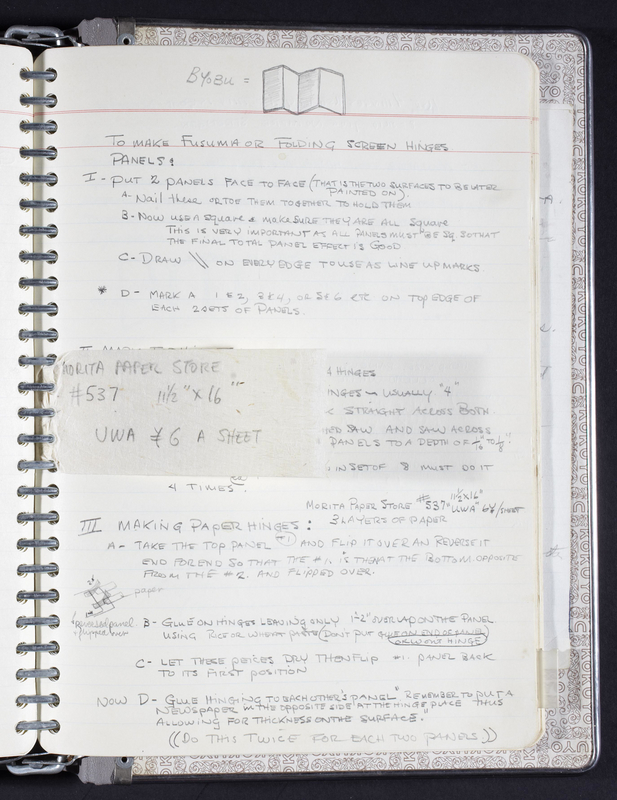 BYOBU =
TO MAKE FUSUMA OR FOLDING SCREEN HINGES
PANELS:
I - PUT 2 PANELS FACE TO FACE (THAT IS THE TWO SURFACES TO BE LATER
PAINTED ON).
A. Nail these or toe them together to hold them
B - Now use a square & make sure they are all square
THIS IS VERY IMPORTANT AS ALL PANELS MUST BE SQ. SO THAT
THE FINAL TOTAL PANEL EFFECT IS GOOD
C - DRAW \\ ON EVERY EDGE TO USE AS LINE UP MARKS
* D - MARK A 1 & 2, 3 & 4, OR 5 & 6 ETC. ON TOP EDGE OF
EACH 2 SETS OF PANELS.
MORITA PAPER STORE
#537 11 1/2" X 16"
UWA ¥6 A SHEET
HINGES
INGES - USUALLY "4"
STRAIGHT ACROSS BOTH
SAW AND SAW ACROSS
PANELS TO A DEPTH OF 1/16" TO 1/8"
IN SET OF 8 MUST DO IT
4 TIMES.
MORITA PAPER STORE #537 "UWA" 11 1/2 X 16" 6¥/SHEET
3 LAYERS OF PAPER
III MAKING PAPER HINGES:
A - TAKE THE TOP PANEL #1 AND FLIP IT OVER AN REVERSE IT
END FOR END SO THAT THE #1. IS THEN AT THE BOTTOM OPPOSITE
FROM THE #2. AND FLIPPED OVER.
paper
reversed panel
flipped over
B - GLUE ON HINGES LEAVING ONLY 1-2" OVERLAP ON THE PANEL
USING RICE OR WHEAT PASTE (DON'T PUT GLUE ON END OF PANEL
OR WORK HINGE)
C - LET THESE PEICES DRY THEN FLIP #1. PANEL BACK
TO ITS FIRST POSITION
NOW D - GLUE HINGING TO EACH OTHER'S PANEL" REMEMBER TO PUT A
NEWSPAPER IN THE OPPOSITE SIDE AT THE HINGE PLACE THUS
ALLOWING FOR THICKNESS ON THE SURFACE."
((DO THIS TWICE FOR EACH TWO PANELS))